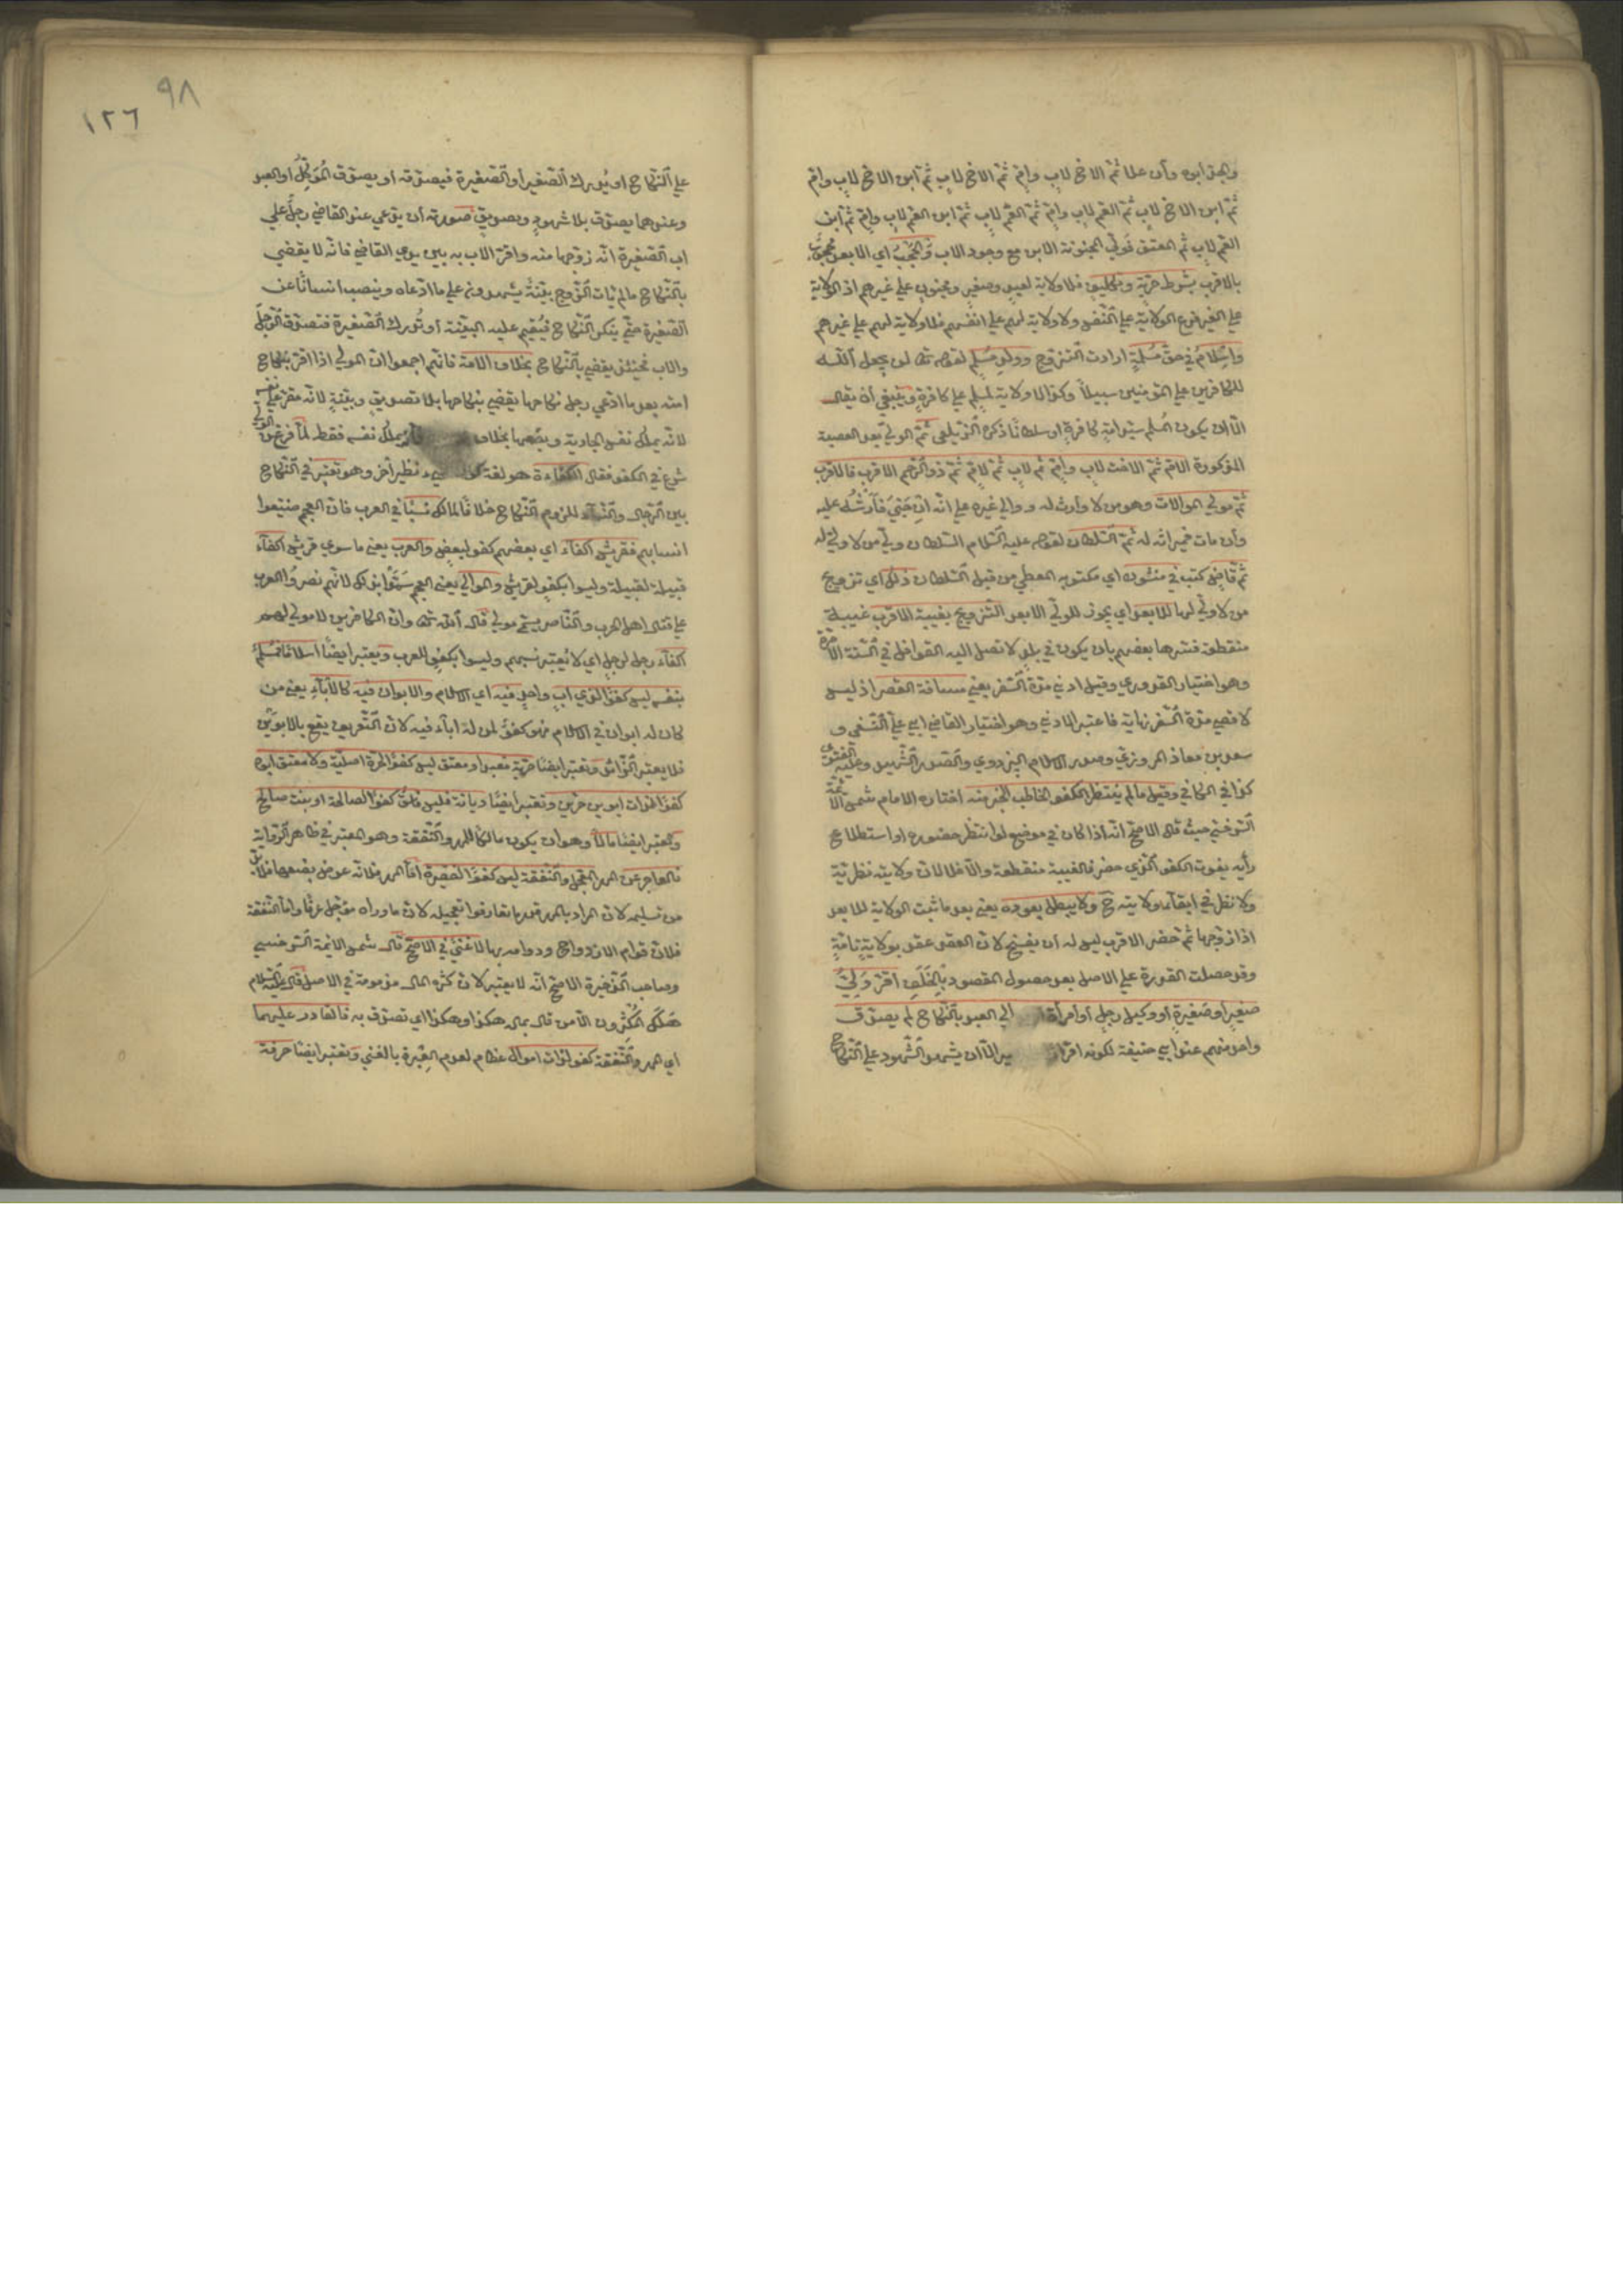 والجد ابوه وأن علا ثم الاخ لاب وامٍ ثم الاخ لاب ثم ابن الاخ لاب وام
ثم ابن الاخ لاب ثم العم لاب وامٍ ثم العم لاب ثم ابن العم لاب وامٍ ثم ابن
العم لاب ثم المعتق فولي المجنونة الابن مع وجود الاب والحجب اي الابعد محجوب
بالاقرب بشرط حرية وتكليف فلا ولاية لعبد وصغير ومجنون علي غيرهم اذ الولاية
علي الغير فرع الولاية علي النفس ولا ولاية لهم علي انفسهم فلا ولاية لهم علي غيرهم
واسلام في حق مسلمة ارادت التزوج وولد مسلم لقوله تعا لن يجعل الله
للكافرين علي المؤمنين سبيلاً وكذا لا ولاية لمسلم علي كافرة وينبغي أن يقال
الا ان يكون المسلم سيد امة كافرة او سلطانا ذكره الزيلعي ثم الولي بعد العصبة
المذكورة الام ثم الاخت لاب وامٍ ثم لاب ثم لام ثم ذو الرحم الاقرب فالاقرب
ثم مولي الموالات وهو من لا وارث له ووالي غيره علي انه ان جني فأرشه عليه
وأن مات فميراثه له ثم السلطان لقوله عليه السلام السلطان ولي من لا ولي له
ثم قاض كتب في منشوره اي مكتوبه المعطي من قبل السلطان ذلك اي تزويج
من لا ولي لها للابعد اي يجوز للولي الابعد التزويج بغيبة الاقرب غيبة
منقطعة فسرها بعضهم بان يكون في بلد لا تصل اليه القوافل في السنة الا مرة
وهو اختيار القدوري وقيل ادني مدة السفر يعني مسافة القصر اذ ليس
لاقصي مدة السفر نهاية فاعتبر الادني وهو اختيار القاضي ابي علي النسفي و
سعد بن معاذ المروزي وصدر الاسلام البزدوي والصدر الشهيد وعليه الفتوي
كذا في الكافي وقيل ما لم ينتظر الكفو الخاطب الخبر منه اختاره الامام شمس الائمة
السرخسي حيث قال الاصح انه اذا كان في موضع لو انتظر حضوره او استطلاع
رأيه يفوت الكفو الذي حضر فالغيبة منقطعة والا فلا لان ولايته نظرية
ولا نظر في ابقاء ولايته ح ولا يبطل بعوده يعني بعد ما ثبت الولاية للابعد
اذا زوجها ثم حضر الاقرب ليس له أن يفسخ لان العقد عقد بولاية تامة
وقد حصلت القدرة علي الاصل بعد حصول المقصود بالخلف اقر ولي
صغير او صغيرة أو وكيل رجل أو امرأة الي العبد بالنكاح لم يصدق
واحد منهم عند ابي حنيفة لكونه اقرار الا ان يشهد الشهود علي النكاح
٩٨
١٢٦
علي النكاح او يدرك الصغير أو الصغيرة فيصدقه او يصدق الموكل او العبد
وعندهما يصدق بلا شهود وتصديق صورته أن يدعي عند القاضي رجل علي
اب الصغيرة انه زوجها منه واقر الاب به بين يدي القاضي فانه لا يقضي
بالنكاح ما لم يات الزوج بينة يشهدون علي ما ادعاه وينصب انسانا عن
الصغيرة حتي ينكر النكاح فيقيم عليه البينة أو تدرك الصغيرة فتصدق الرجل
والاب فحينئذ يقضي بالنكاح بخلاف الامة فانهم اجمعوا ان المولي اذا اقر بنكاح
امته بعد ما ادعي رجل نكاحها يقضي بنكاحها بلا تصديق وبينة لانه مقر علي نفسه
لانه يملك نفس الجارية وبضعها بخلاف يملك نفسه فقط لما فرغ من الولي
شرع في الكفو فقال الكفاءة هو لغة نظير آخر وهو تعتبر في النكاح
بين الرجال والنساء للزوم النكاح خلافا لمالك نسبا في العرب فان العجم ضيعوا
انسابهم فقريش اكفاء اي بعضهم كفو لبعض والعرب يعني ما سوي قريش اكفاء
قبيلة لقبيلة وليسوا بكفو لقريش والموالي يعني العجم سموا بذلك لانهم نصروا العرب
علي قتال اهل الحرب والناصر يسمي مولي قال الله تعا وان الكافرين لا مولي لهم
اكفاء رجل لرجل اي لا يعتبر نسبهم وليسوا بكفو للعرب ويعتبر ايضا اسلاما فمسلم
بنفسه ليس كفوا لذي اب واحد فيه اي الاسلام والابوان فيه كالاباء يعني من
كان له ابوان في الاسلام فهو كفو لمن له اباء فيه لان التعريف يقع بالابوين
فلا يعتبر الزائد وتعتبر ايضا حرية فعبد او معتق ليس كفوا لحرة اصلية ولا معتق ابوه
كفوا لذات ابوين حرين وتعتبر أيضا ديانة فليس فاسق كفوا لصالحة او بنت صالح
ويعتبر ايضا مالا وهو ان يكون مالكا للمهر والنفقة وهو المعتبر في ظاهر الرواية
فالعاجز عن المهر المعجل والنفقة ليس كفوا لفقيرة اما المهر فلانه عوض بضعها فلا بد
من تسليمه لان المراد بالمهر قدر ما تعارفوا تعجيله لان ما وراه مؤجل عرفا واما النفقة
فلان قوام الازدواج ودوامه بها لا غني في الاصح قال شمس الائمة السرخسي
وصاحب الذخيرة الاصح انه لا يعتبر لان كثرة المال مذمومة في الاصل قال عليه السلام
هلك المكثرون الا من قال بماله هكذا وهكذا اي تصدق به فالقادر عليهما
اي المهر والنفقة كفو لذات اموال عظام لعدم العبرة بالغني وتعتبر ايضا حرفة